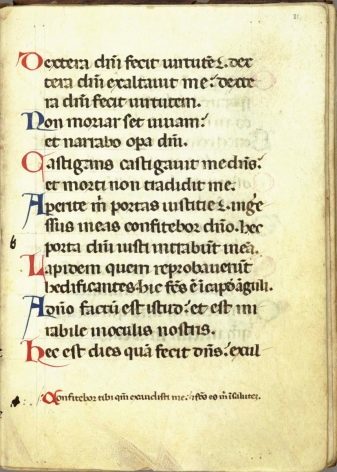 21.
Dextera dñi fecit uirtutẽ. dex
tera dñi exaltauit me. dexte
ra dñi fecit uirtutem.
Non moriar set uiuam.
et narrabo opa dñi.
Castigans castigauit me dñs.
et morti non tradidit me.
Aperite m̃ portas iustitie. ing̃e
ssus meas confitebor dño. hec
porta dñi iusti intrabũt in eã.
Lapidem quem reprobauerũt
hedificantes. hic fc̃s ẽ i capð ãguli.
A dño factũ est istud. et est mi
rabile in oculis nostris.
Hec est dies quã fecit dñs. exul
Confitebor tibi qm̃ exaudisti me. ⁊ fc̃s es m̃ i salutẽ.
b